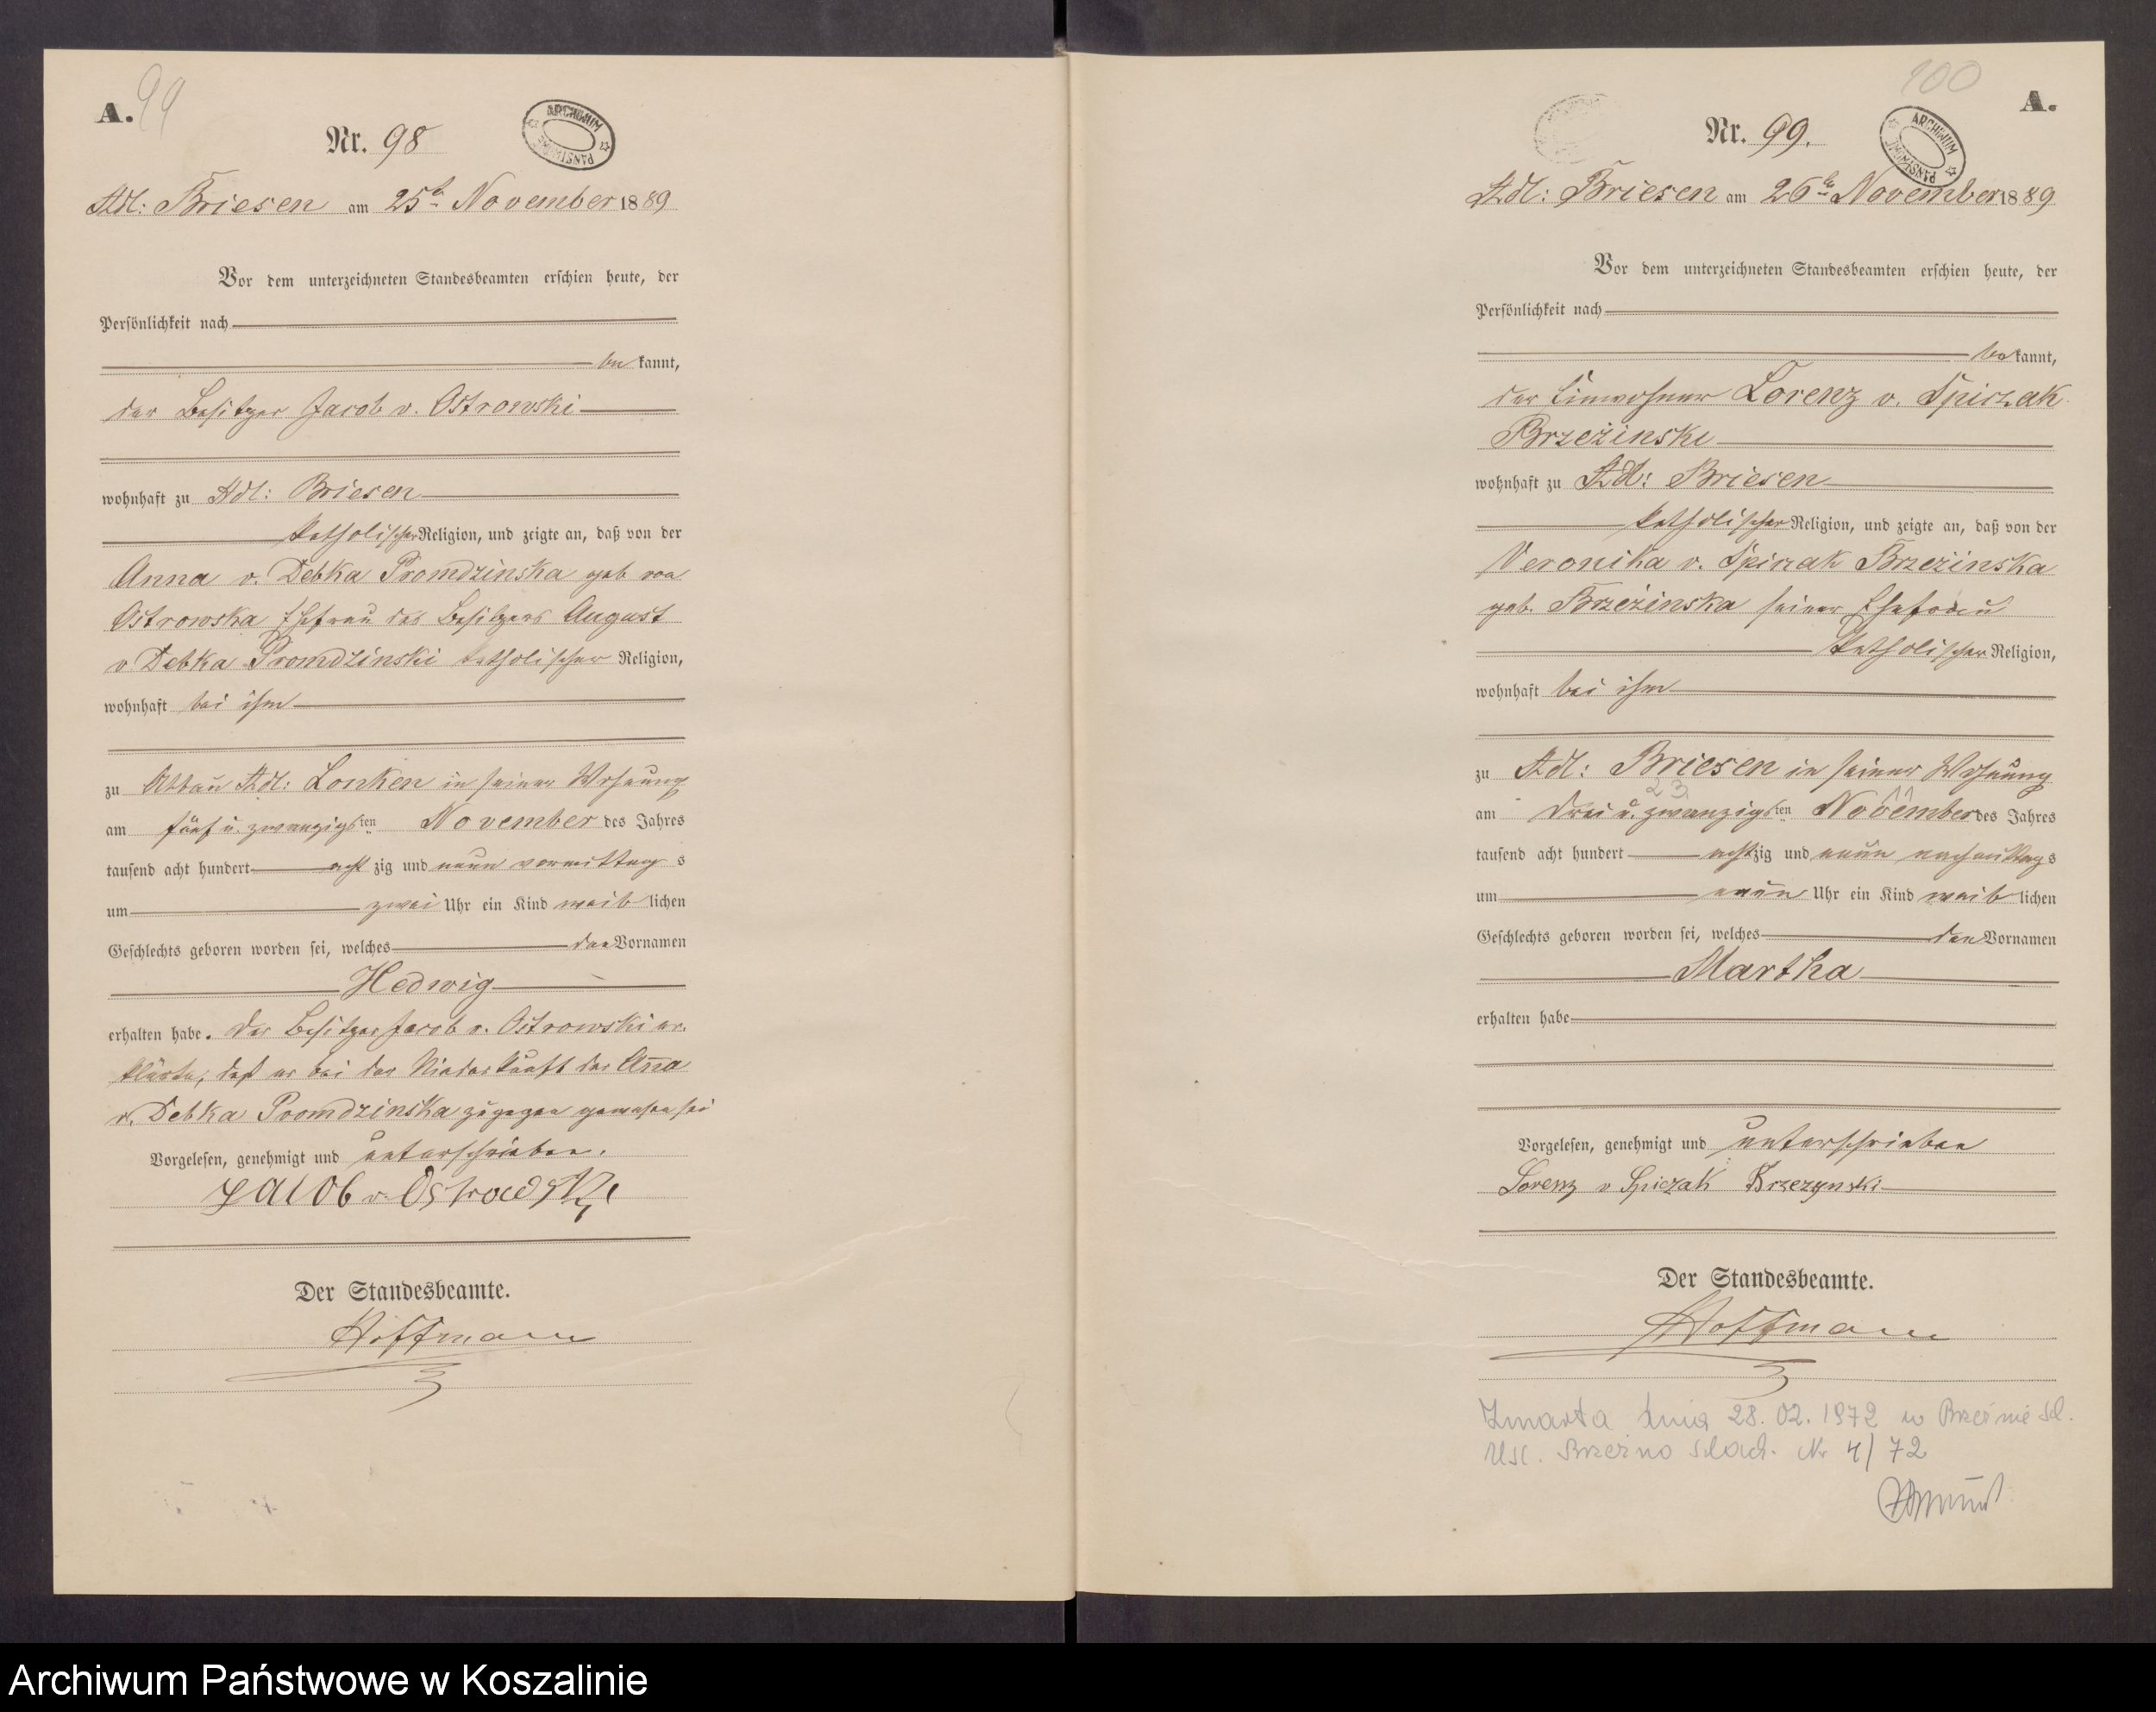 A. 99
ARCHIWUM PAŃSTWOWE
Nr. 98
Adl: Briesen am 25t November 1889
Vor dem unterzeichneten Standesbeamten erschien heute, der
Persönlichkeit nach
be kannt,
der Besitzer Jacob v. Ostrowski
wohnhaft zu Adl: Briesen
katholischer Religion, und zeigte an, daß von der
Anna v. Debka Promdzinska geb von
Ostrowska Ehefrau des Besitzers August
v Debka Promdzinski katholischer Religion,
wohnhaft bei ihm
zu Abbau Adl: Lonken in seiner Wohnung
am fünf u. zwanzigsten November des Jahres
tausend acht hundert acht zig und neun vormittag s
um zwei Uhr ein Kind weib lichen
Geschlechts geboren worden sei, welches den Vornamen
Hedwig
erhalten habe. Der Besitzer Jacob v. Ostrowski er-
klärte, daß er bei der Niederkunft der Anna
v. Debka Promdzinska zugegen gewesen sei
Vorgelesen, genehmigt und unterschrieben.
Jacob v. Ostrowski
Der Standesbeamte.
Hoffmann
100 A.
ARCHIWUM PAŃSTWOWE
Nr. 99.
Adl: Briesen am 26te November 1889
Vor dem unterzeichneten Standesbeamten erschien heute, der
Persönlichkeit nach
be kannt,
der Einwohner Lorenz v. Spiczak
Brzezinski
wohnhaft zu Adl: Briesen
katholischer Religion, und zeigte an, daß von der
Veronika v. Spiczak Brzezinska
geb. Brzezinska seiner Ehefrau
katholischer Religion,
wohnhaft bei ihm
zu Adl: Briesen in seiner Wohnung
23 11
am drei u. zwanzigsten November des Jahres
tausend acht hundert achtzig und neun nachmittags
um neun Uhr ein Kind weib lichen
Geschlechts geboren worden sei, welches den Vornamen
Martha
erhalten habe
Vorgelesen, genehmigt und unterschrieben
Lorenz v Spiczak Brzezynski
Der Standesbeamte.
Hoffmann
Zmarła dnia 28.02.1972 w Brzeźnie Szl.
Usc. Brzeźno Szlach. Nr 4/72
Archiwum Państwowe w Koszalinie